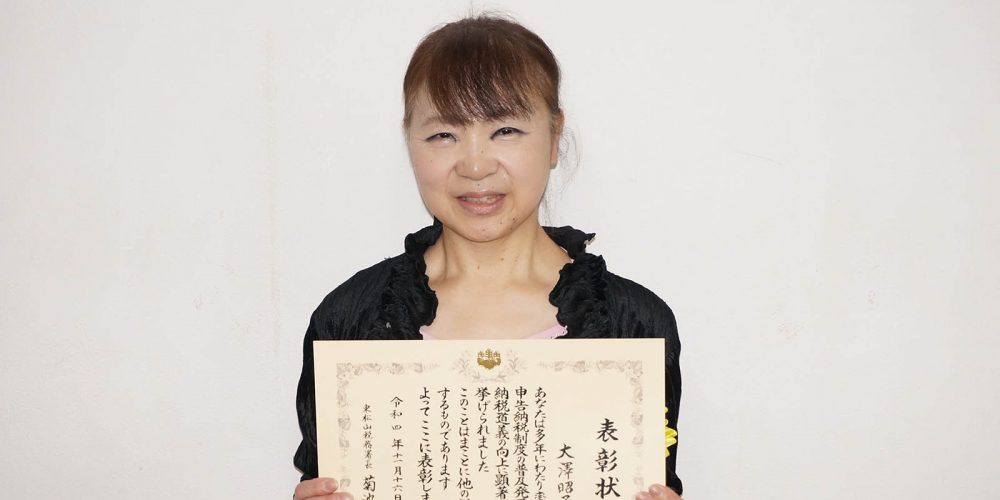 表彰状
大澤昭
あなたは多年にわたり
申告納税制度の普及発
納税道義の向上に顕著
挙げられました
このことはまことに他の
するものであります
よってここに表彰しま
令和四年十一月十六日
東松山税務署長 菊池